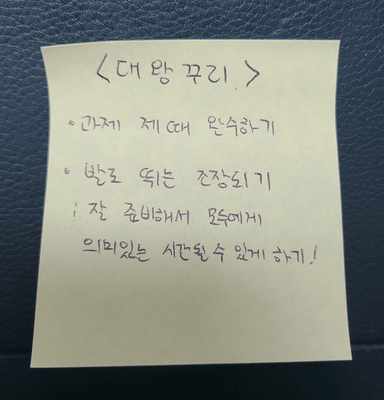 <대왕꾸리>
• 과제 제때 완수하기
• 발로 뛰는 조장되기
: 잘 준비해서 모두에게
의미있는 시간될 수 있게 하기!